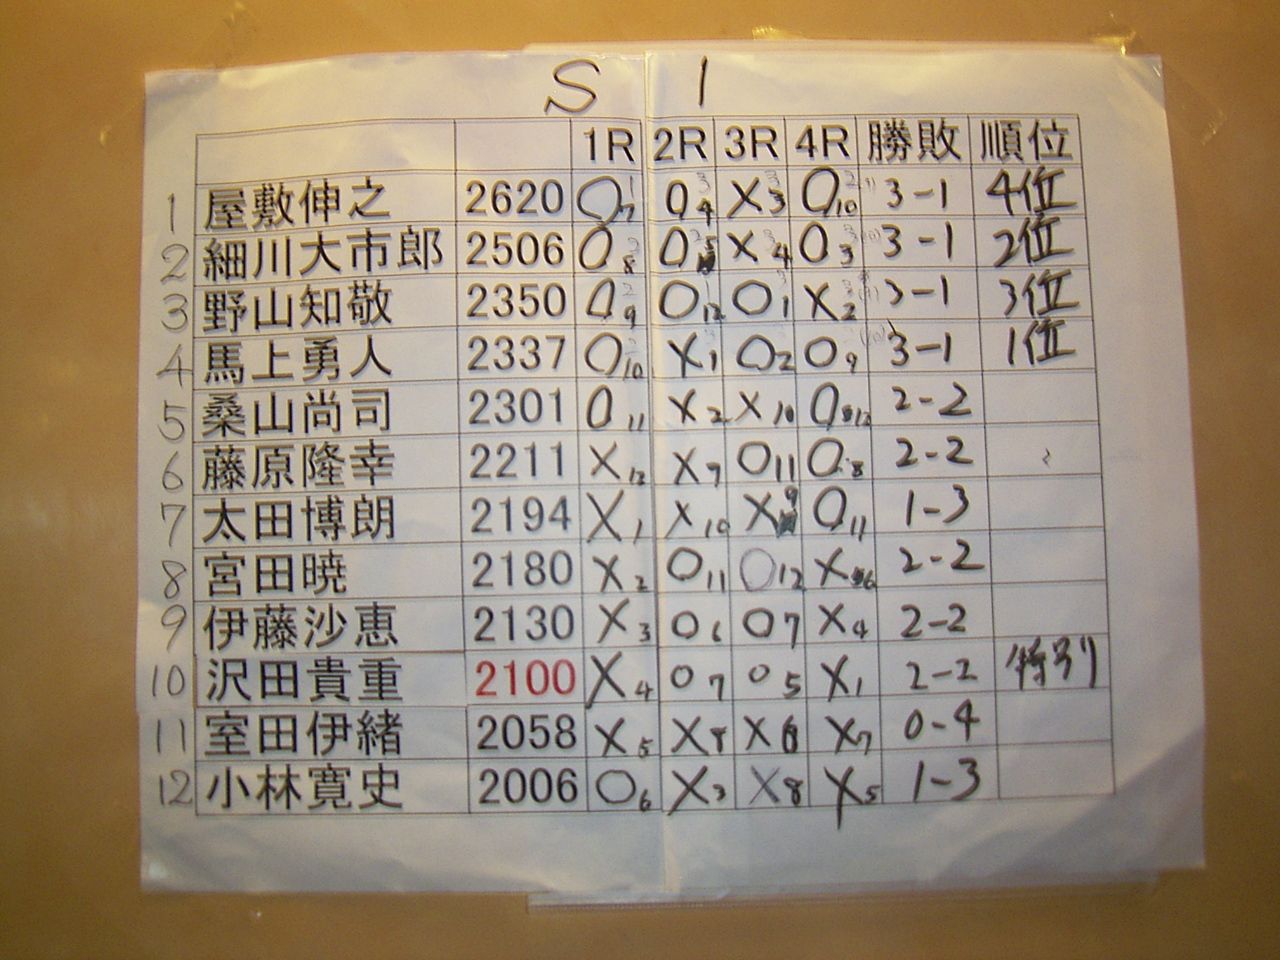 S 1
1R 2R 3R 4R 勝敗 順位
1 屋敷伸之 2620 O7 O4 X3 O10 3-1 4位
2 細川大市郎 2506 O8 O5 X4 O3 3-1 2位
3 野山知敬 2350 O9 O12 O1 X2 3-1 3位
4 馬上勇人 2337 O10 X1 O2 O9 3-1 1位
5 桑山尚司 2301 O11 X2 X10 O12 2-2
6 藤原隆幸 2211 X12 X9 O11 O8 2-2
7 太田博朗 2194 X1 X10 X9 O11 1-3
8 宮田暁 2180 X2 O11 O12 X6 2-2
9 伊藤沙恵 2130 X3 O6 O7 X4 2-2
10 沢田貴重 2100 X4 O7 O5 X1 2-2 特別
11 室田伊緒 2058 X5 X8 X6 X7 0-4
12 小林寛史 2006 O6 X3 X8 X5 1-3